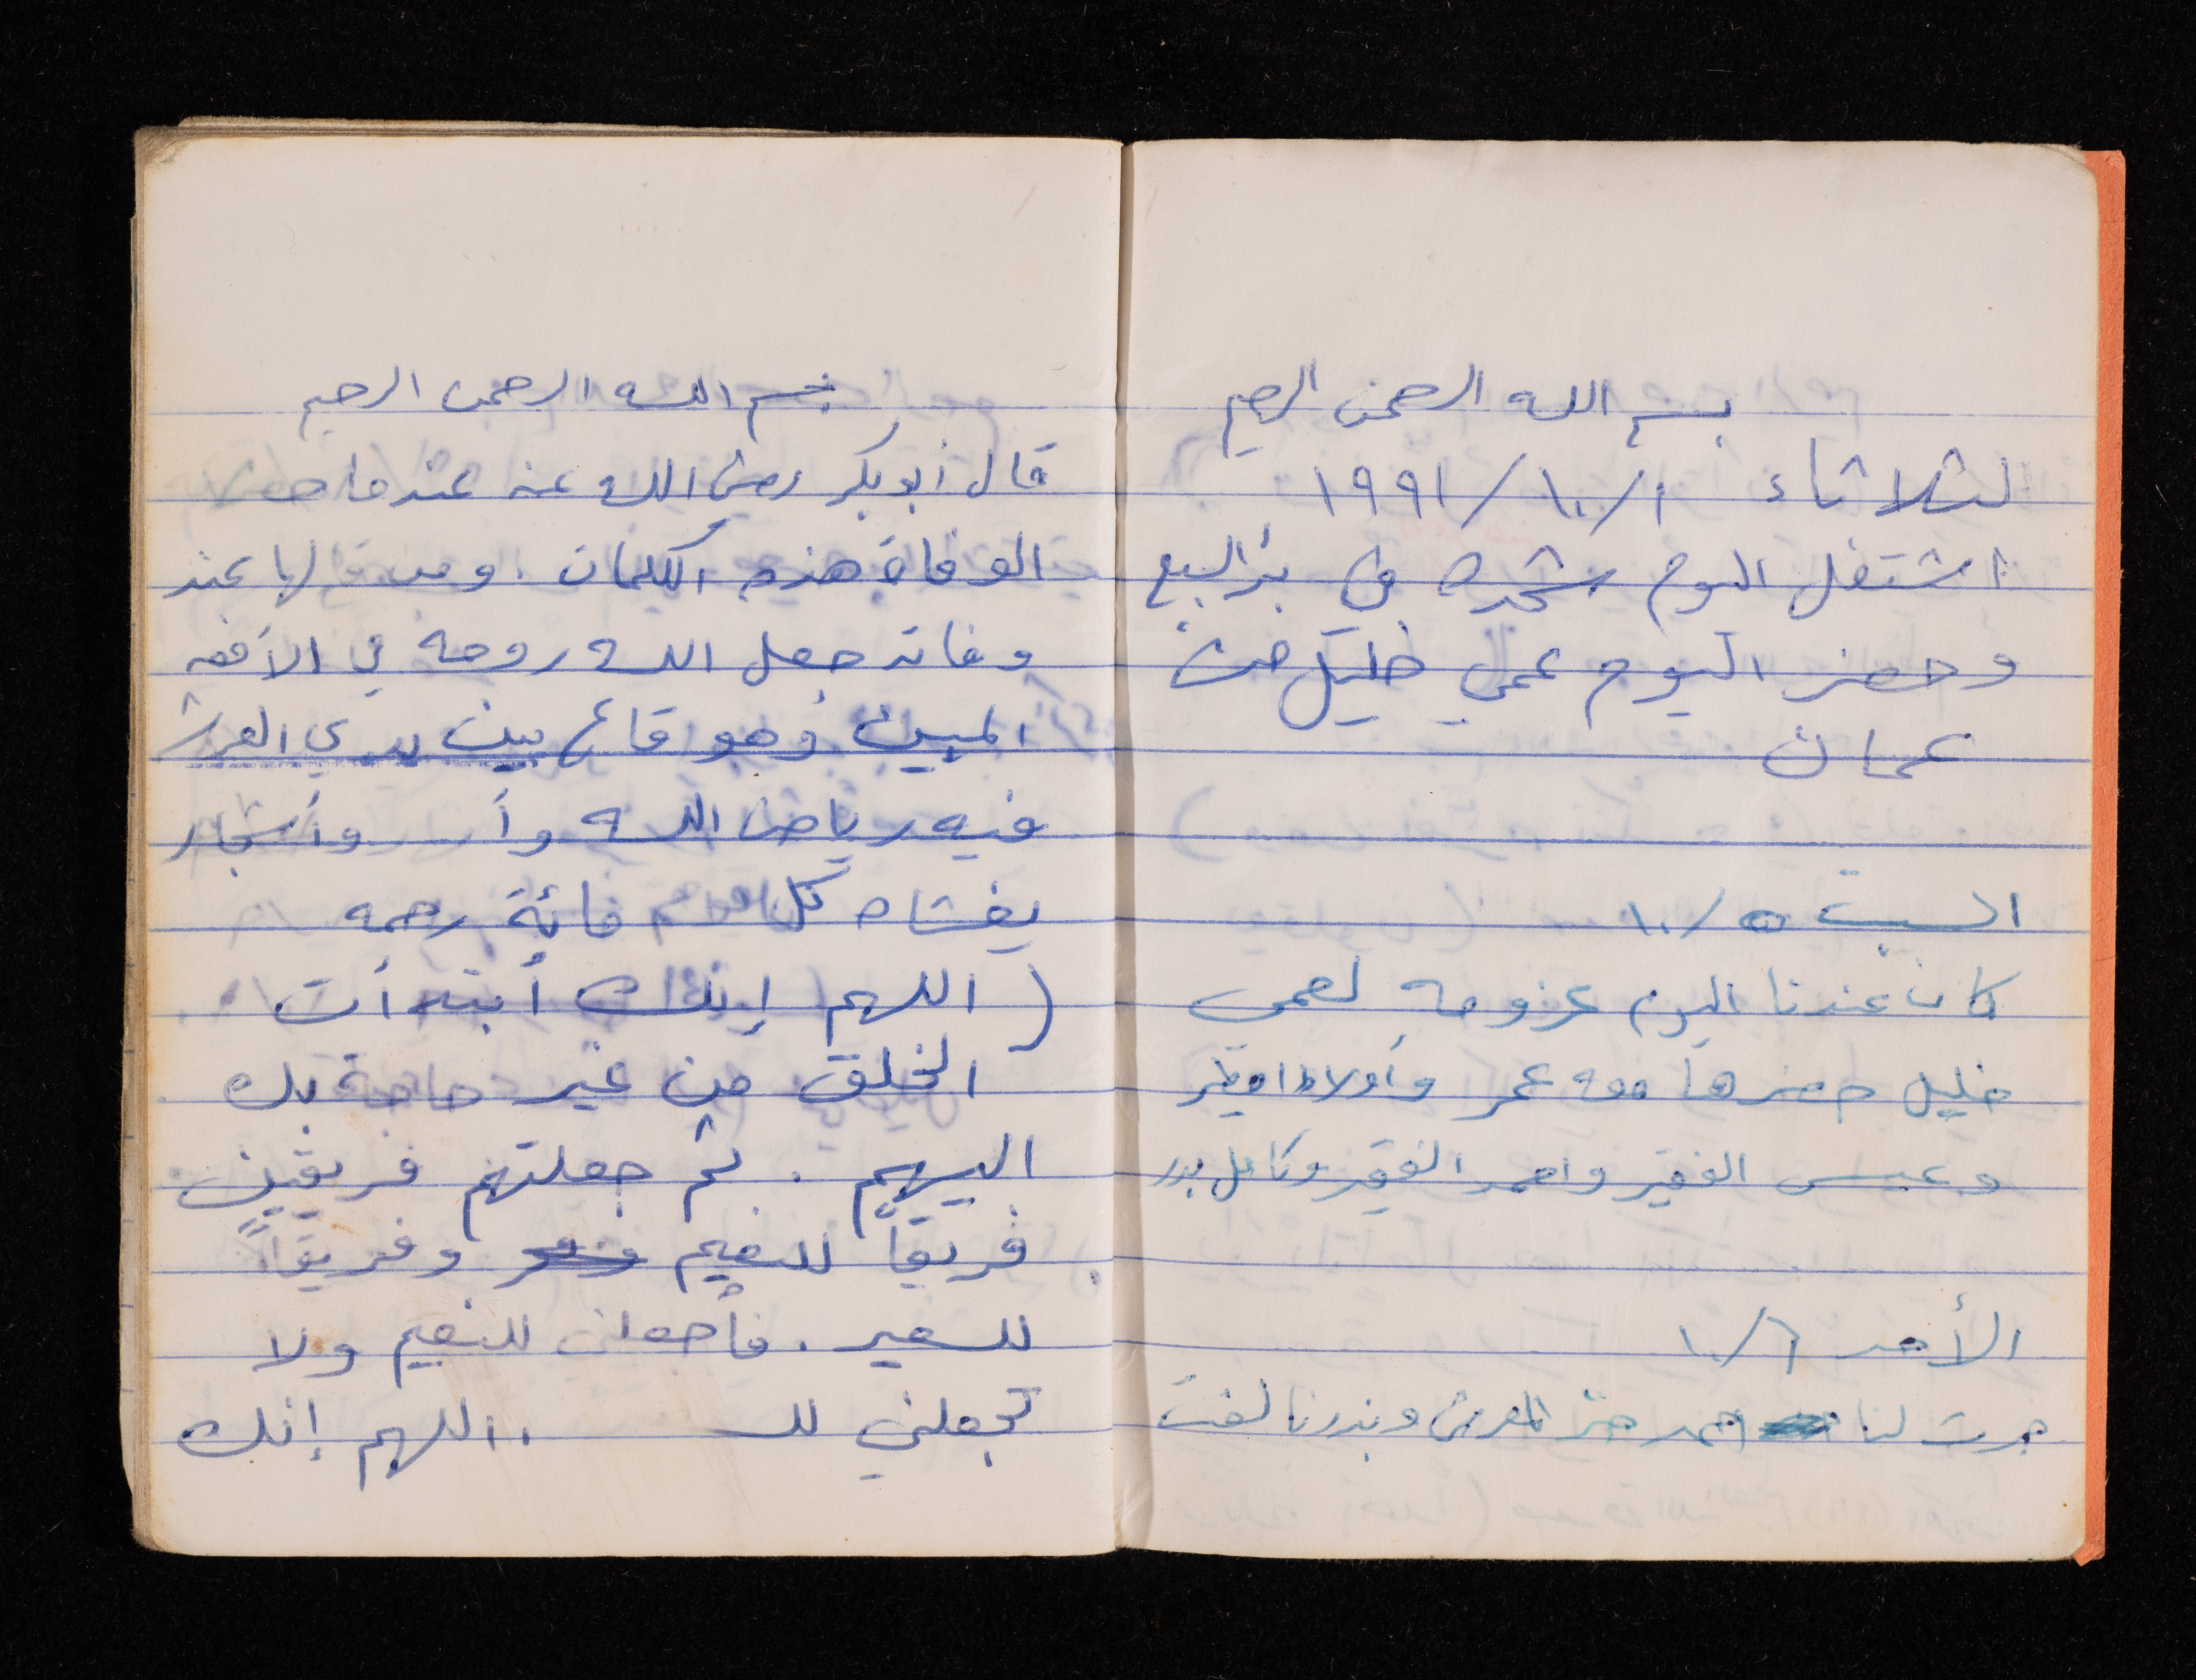 بسم الله الرحمن الرحيم
الثلاثاء ١/١٠/١٩٩١
اشتغل اليوم شحده في بئر السبع
وحضر اليوم عمي خليل من
عمان
السبت ٥/١٠
كان عندنا اليوم عزومه لعمي
خليل حضرها معه عمر وأولاد
وعيسى الفقير واحمد الفقير وكامل بدر
الأحد ٦/١٠
جرت لنا احمد وبدرنا لفت
بسم الله الرحمن الرحيم
قال أبو بكر رضي الله عنه عندما حضرته
الوفاة هذه الكلمات . ومن قالها عند
وفاته جعل الله روحه في الأفق
المبين وهو قاع بين يدي العرش
فيه رياض الله وأ وأشجار
يغشاه كل يوم مائة رحمه
( اللهم إنك أبتدأت
الخلق من غير حاجة بك
اليهم . ثم جعلتهم فريقين
فريقاً للنعيم وفريقاً
للسعير . فأجعلني للنعيم ولا
تجعلني للـ . اللهم إنك